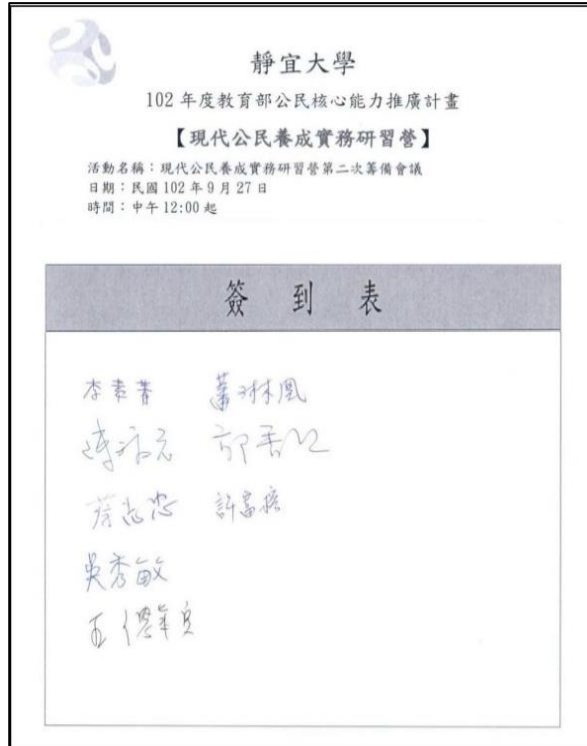 靜宜大學
102 年度教育部公民核心能力推廣計畫
【現代公民養成實務研習營】
活動名稱：現代公民養成實務研習營第二次籌備會議
日期：民國 102 年 9 月 27 日
時間：中午 12:00 起
簽 到 表
李素菁 蕭琳凰
吳秀敏